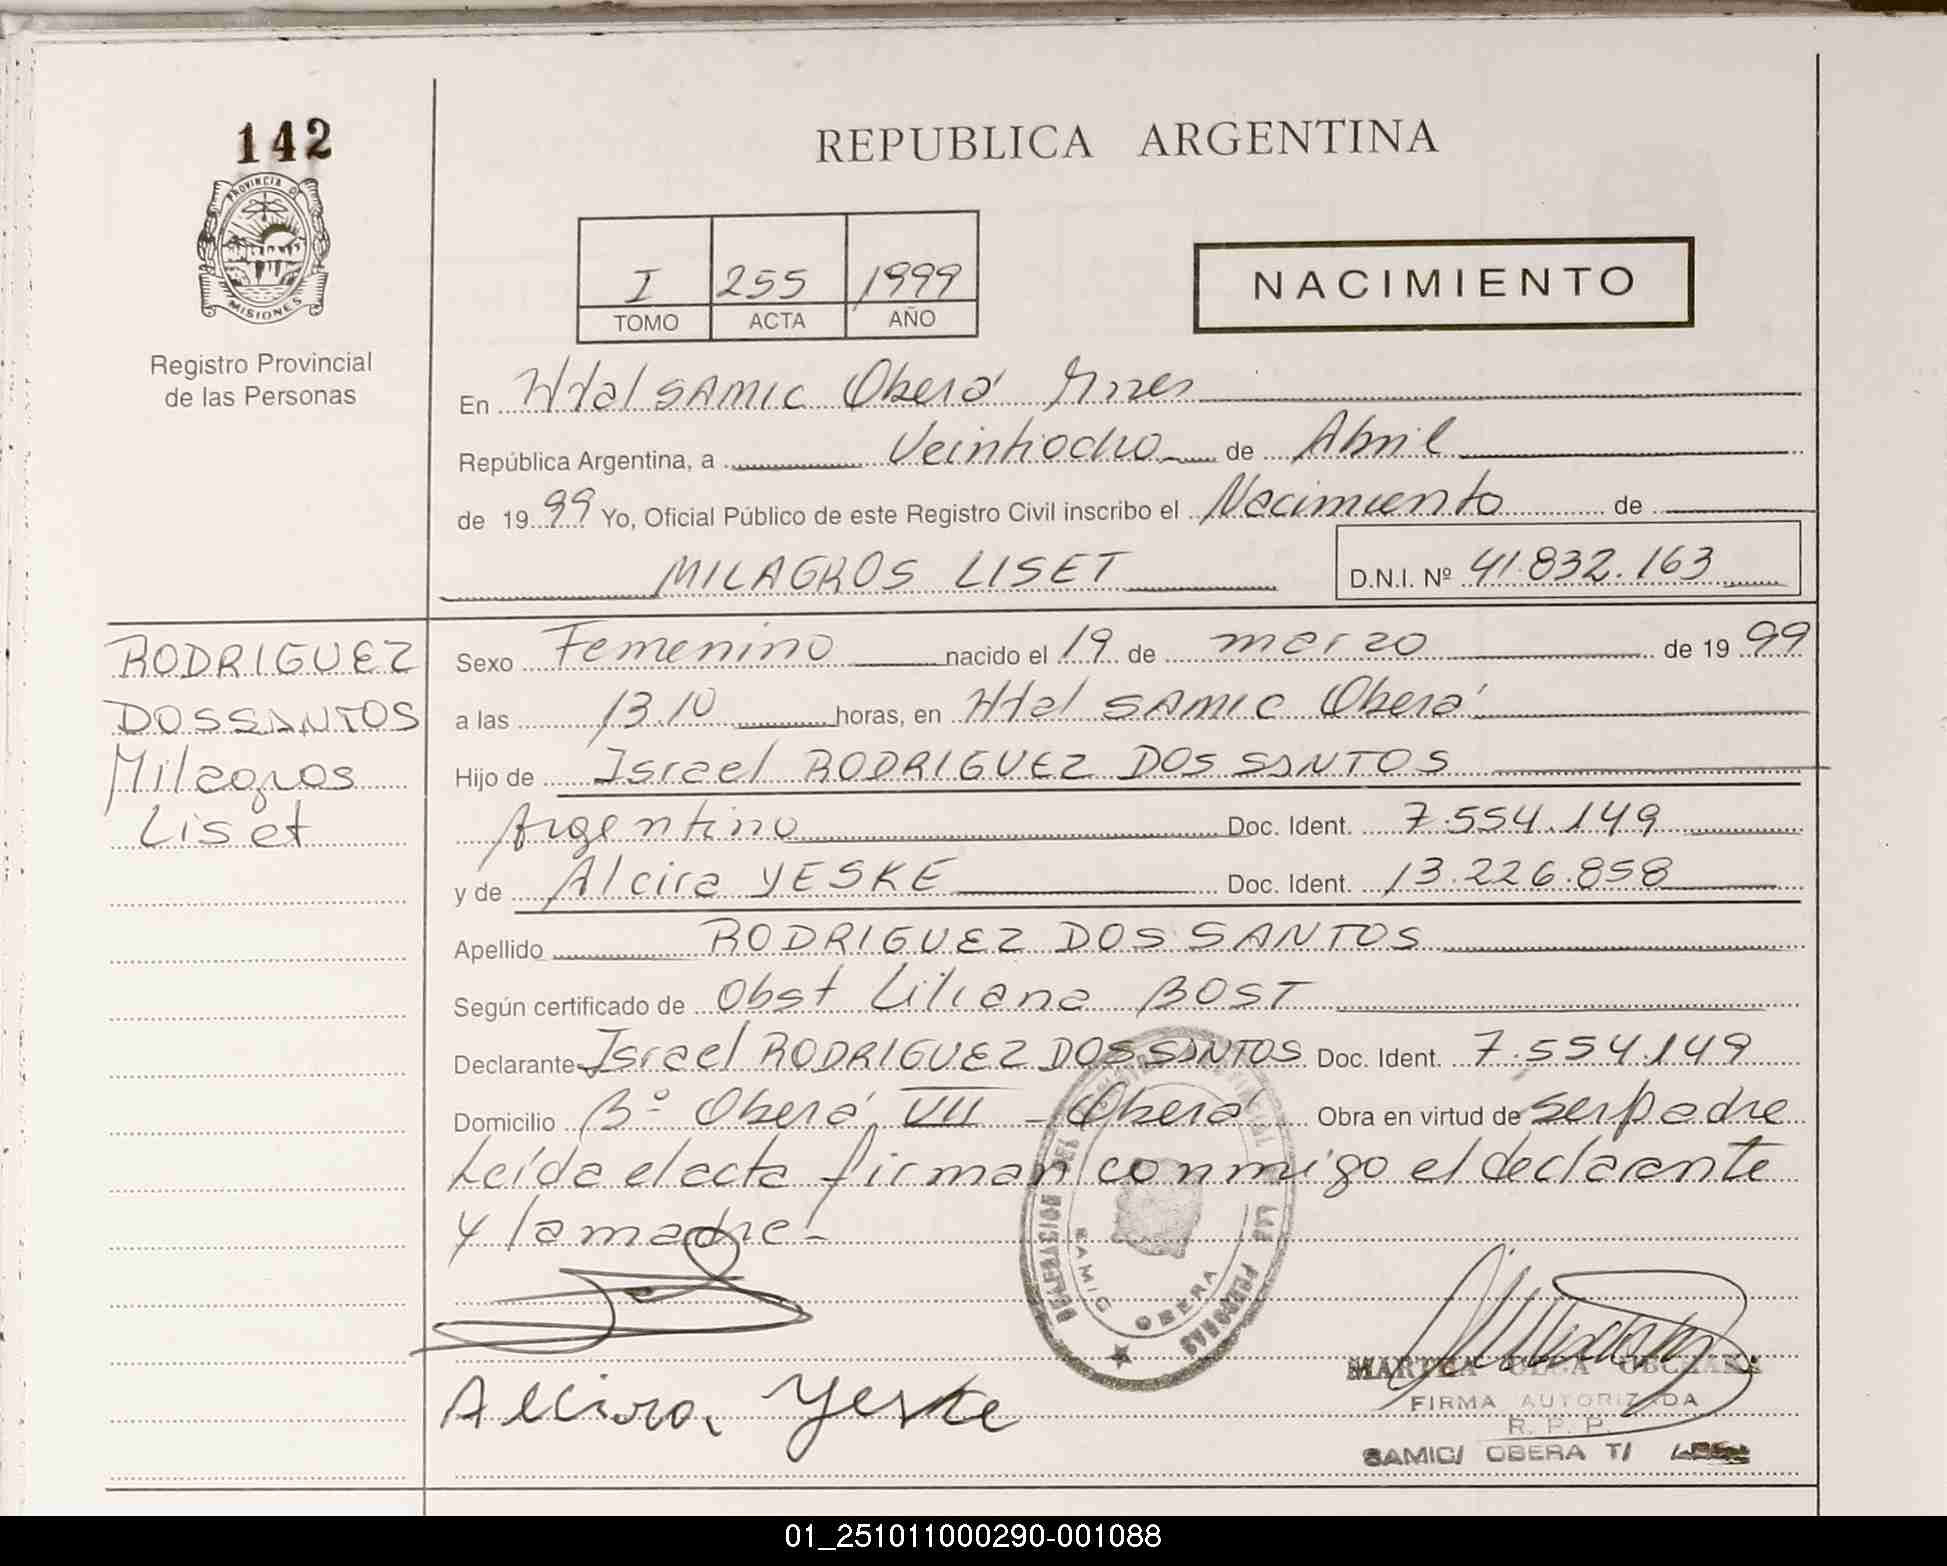 142
PROVINCIA DE
MISIONES
Registro Provincial
de las Personas
REPUBLICA ARGENTINA
I 255 1999
TOMO ACTA AÑO
NACIMIENTO
En Htal SAMIC Oberá Mnes
República Argentina, a Veintiocho de Abril
de 1999 Yo, Oficial Público de este Registro Civil inscribo el Nacimiento de
MILAGROS LISET D.N.I. Nº 41.832.163
RODRIGUEZ
DOS SANTOS
Milagros
Liset
Sexo Femenino nacido el 19 de marzo de 1999
a las 13 10 horas, en Htal SAMIC Oberá
Hijo de Israel RODRIGUEZ DOS SANTOS
Argentino Doc. Ident. 7.554.149
y de Alcira YESKE Doc. Ident. 13.226.858
Apellido RODRIGUEZ DOS SANTOS
Según certificado de Obst Liliana BOST
Declarante Israel RODRIGUEZ DOS SANTOS Doc. Ident. 7.554.149
Domicilio Bº Oberá VII - Oberá Obra en virtud de ser padre
Leída el acta firman conmigo el declarante
y la madre-
DELEGACION DEL REGISTRO PROVINCIAL DE LAS PERSONAS
SAMIC OBERA
Alcira Yeske
MARTHA OLGA
FIRMA AUTORIZADA
R. P. P.
SAMIC/ OBERA T/
01_251011000290-001088